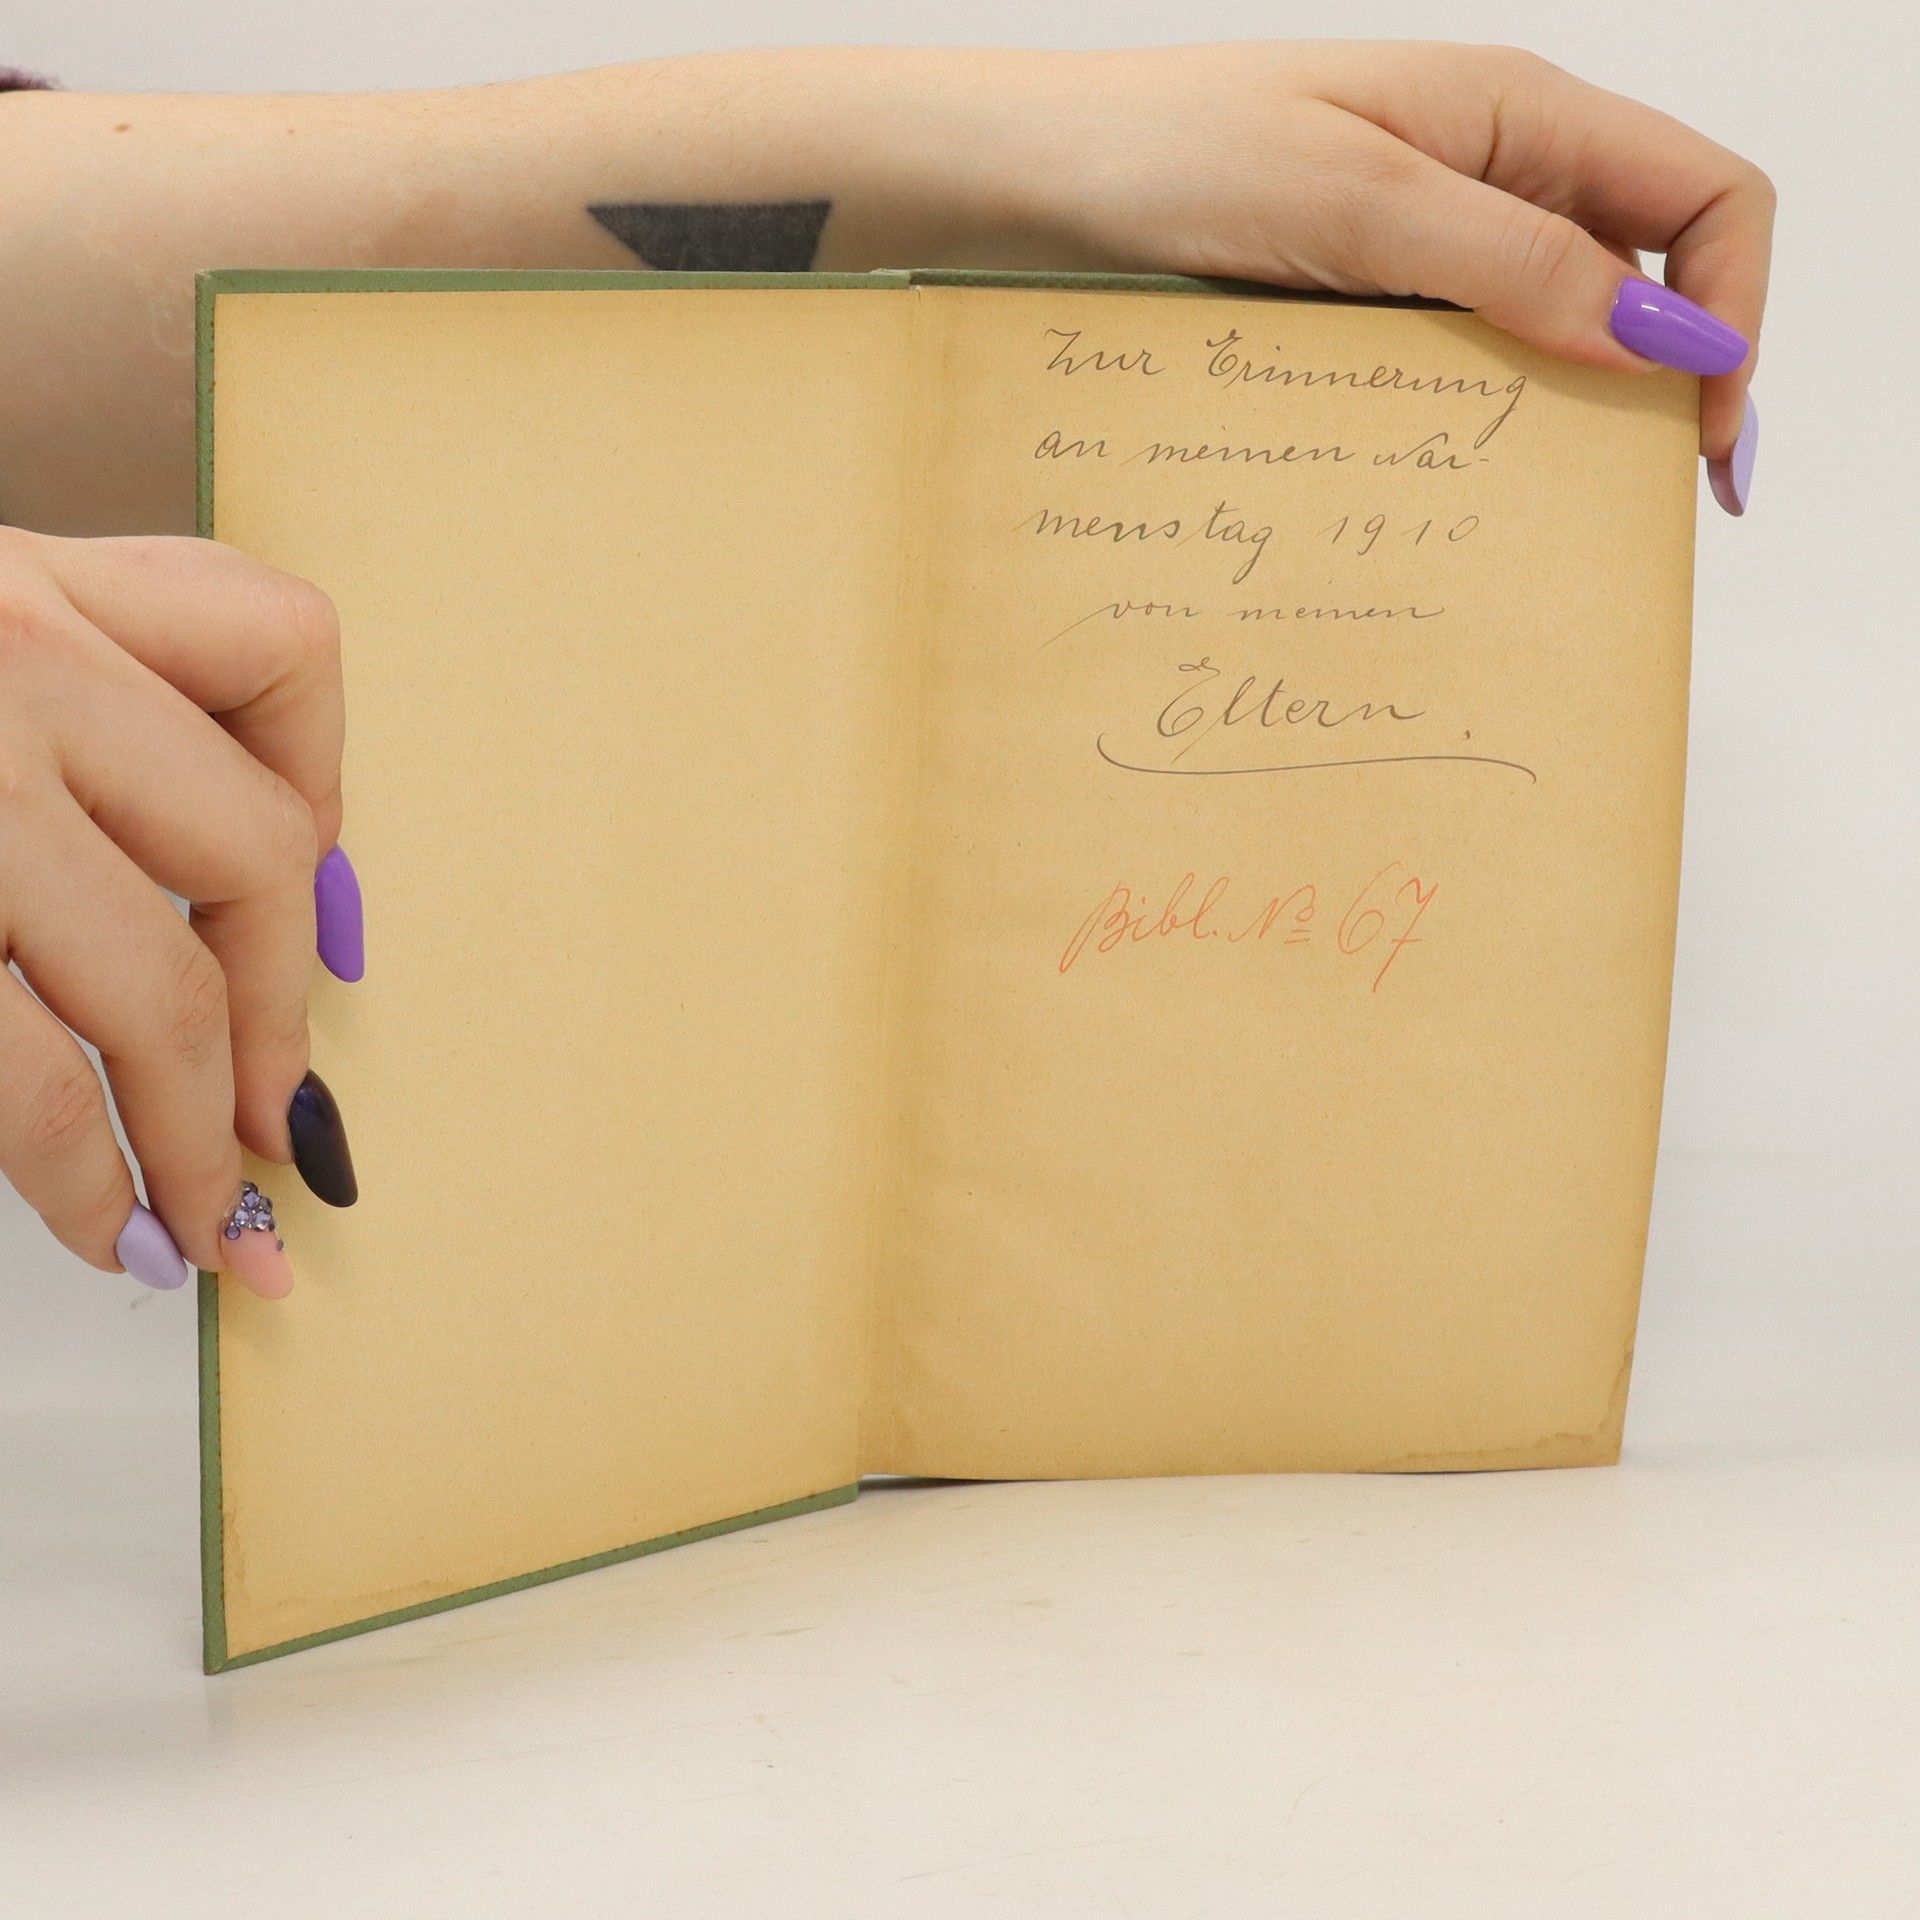 Zur Erinnerung
an meinen Na-
menstag 1910
von meinen
Eltern.
Bibl. No 67